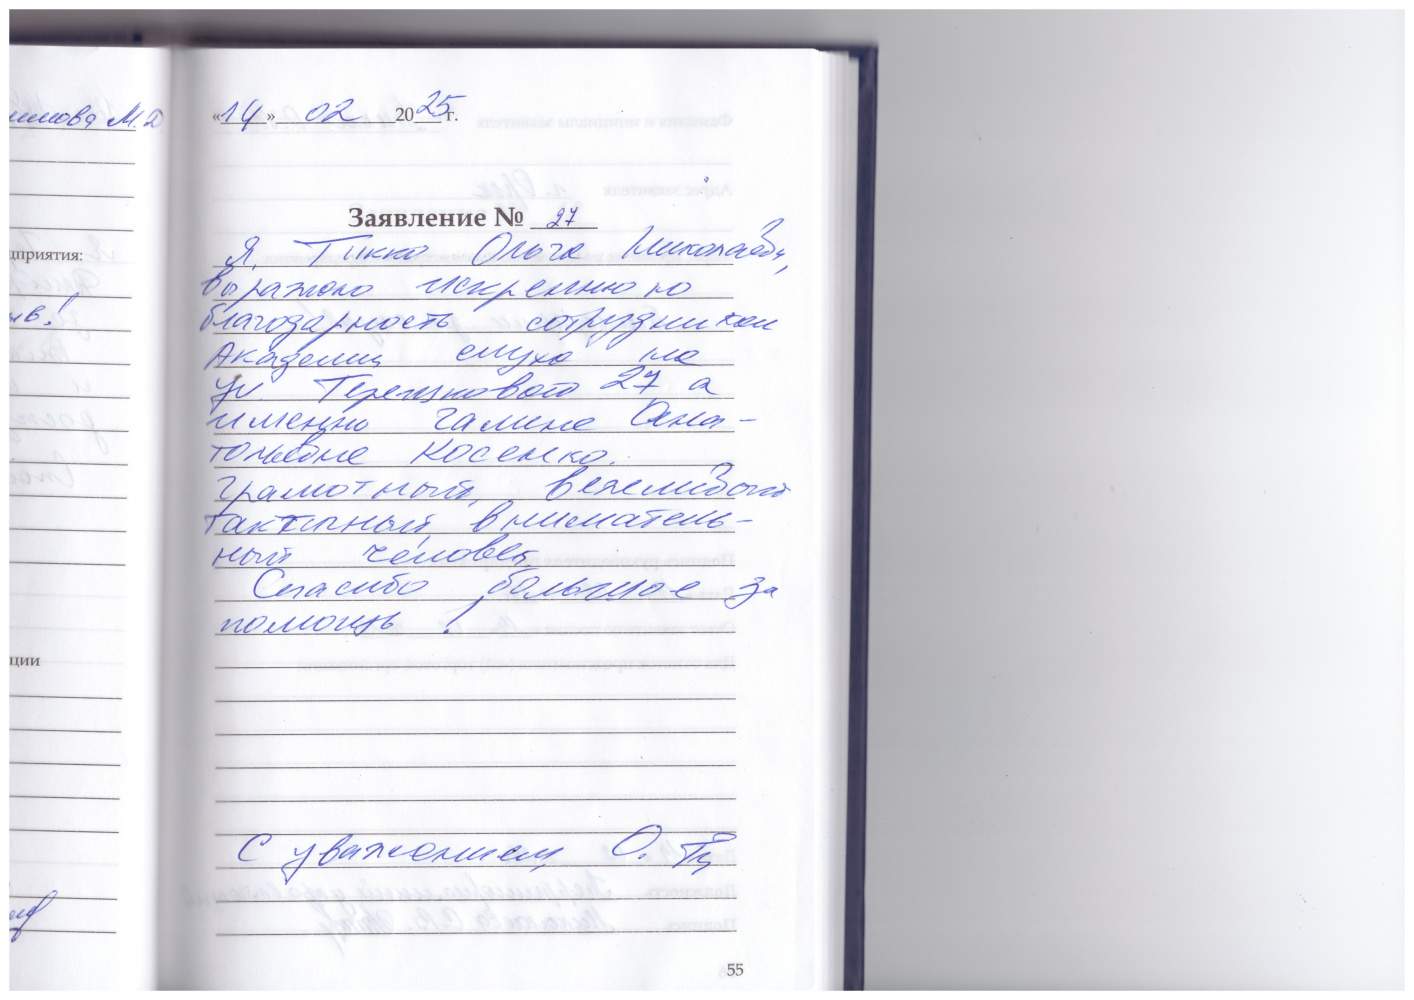 «14» 02 2025 г.
Заявление № 27
Я, Тикко Ольга Николаевна,
выражаю искреннюю
благодарность сотрудникам
Академии слуха на
ул Терешкового 27 а
именно Галине Ана-
тольевне Косенко.
Грамотный, вежливый
тактичный, вниматель-
ный человек
Спасибо большое за
помощь!
С уважением О. Ти
55
М.Д
дприятия:
ции